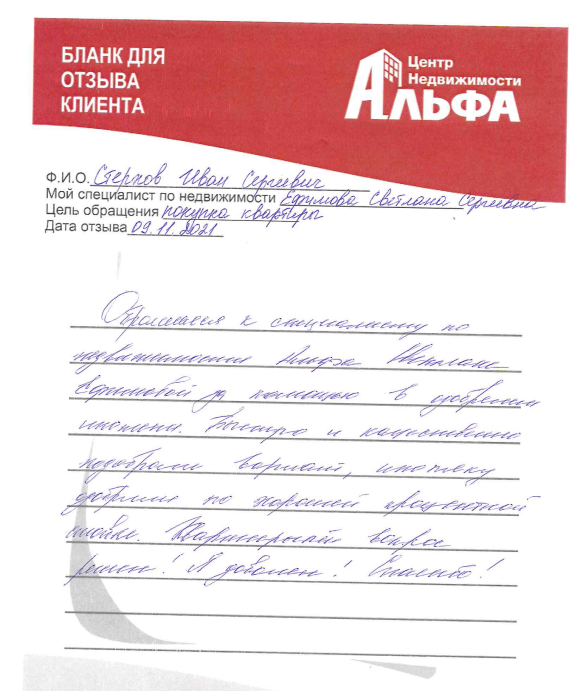 БЛАНК ДЛЯ
ОТЗЫВА
КЛИЕНТА
Центр
Недвижимости
АЛЬФА
Ф.И.О. Стерхов Иван Сергеевич
Мой специалист по недвижимости Ефимова Светлана Сергеевна
Цель обращения покупка квартиры
Дата отзыва 09.11.2021
Обратился к специалисту по
недвижимости Альфа Светлане
Ефимовой за помощью в одобрении
ипотеки. Быстро и качественно
подобрали вариант, ипотеку
одобрили по хорошей процентной
ставке. Квартирный вопрос
решен! Я доволен! Спасибо!